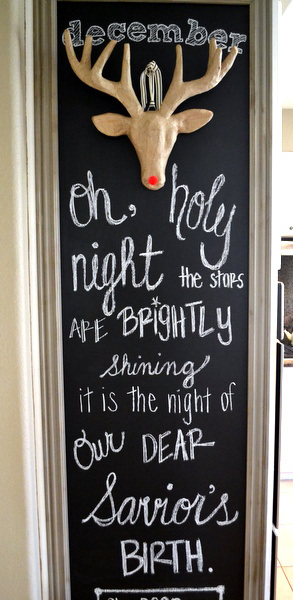 december
oh, holy
night the stars
ARE BRIGHTLY
shining
it is the night of
our DEAR
Savior's
BIRTH.